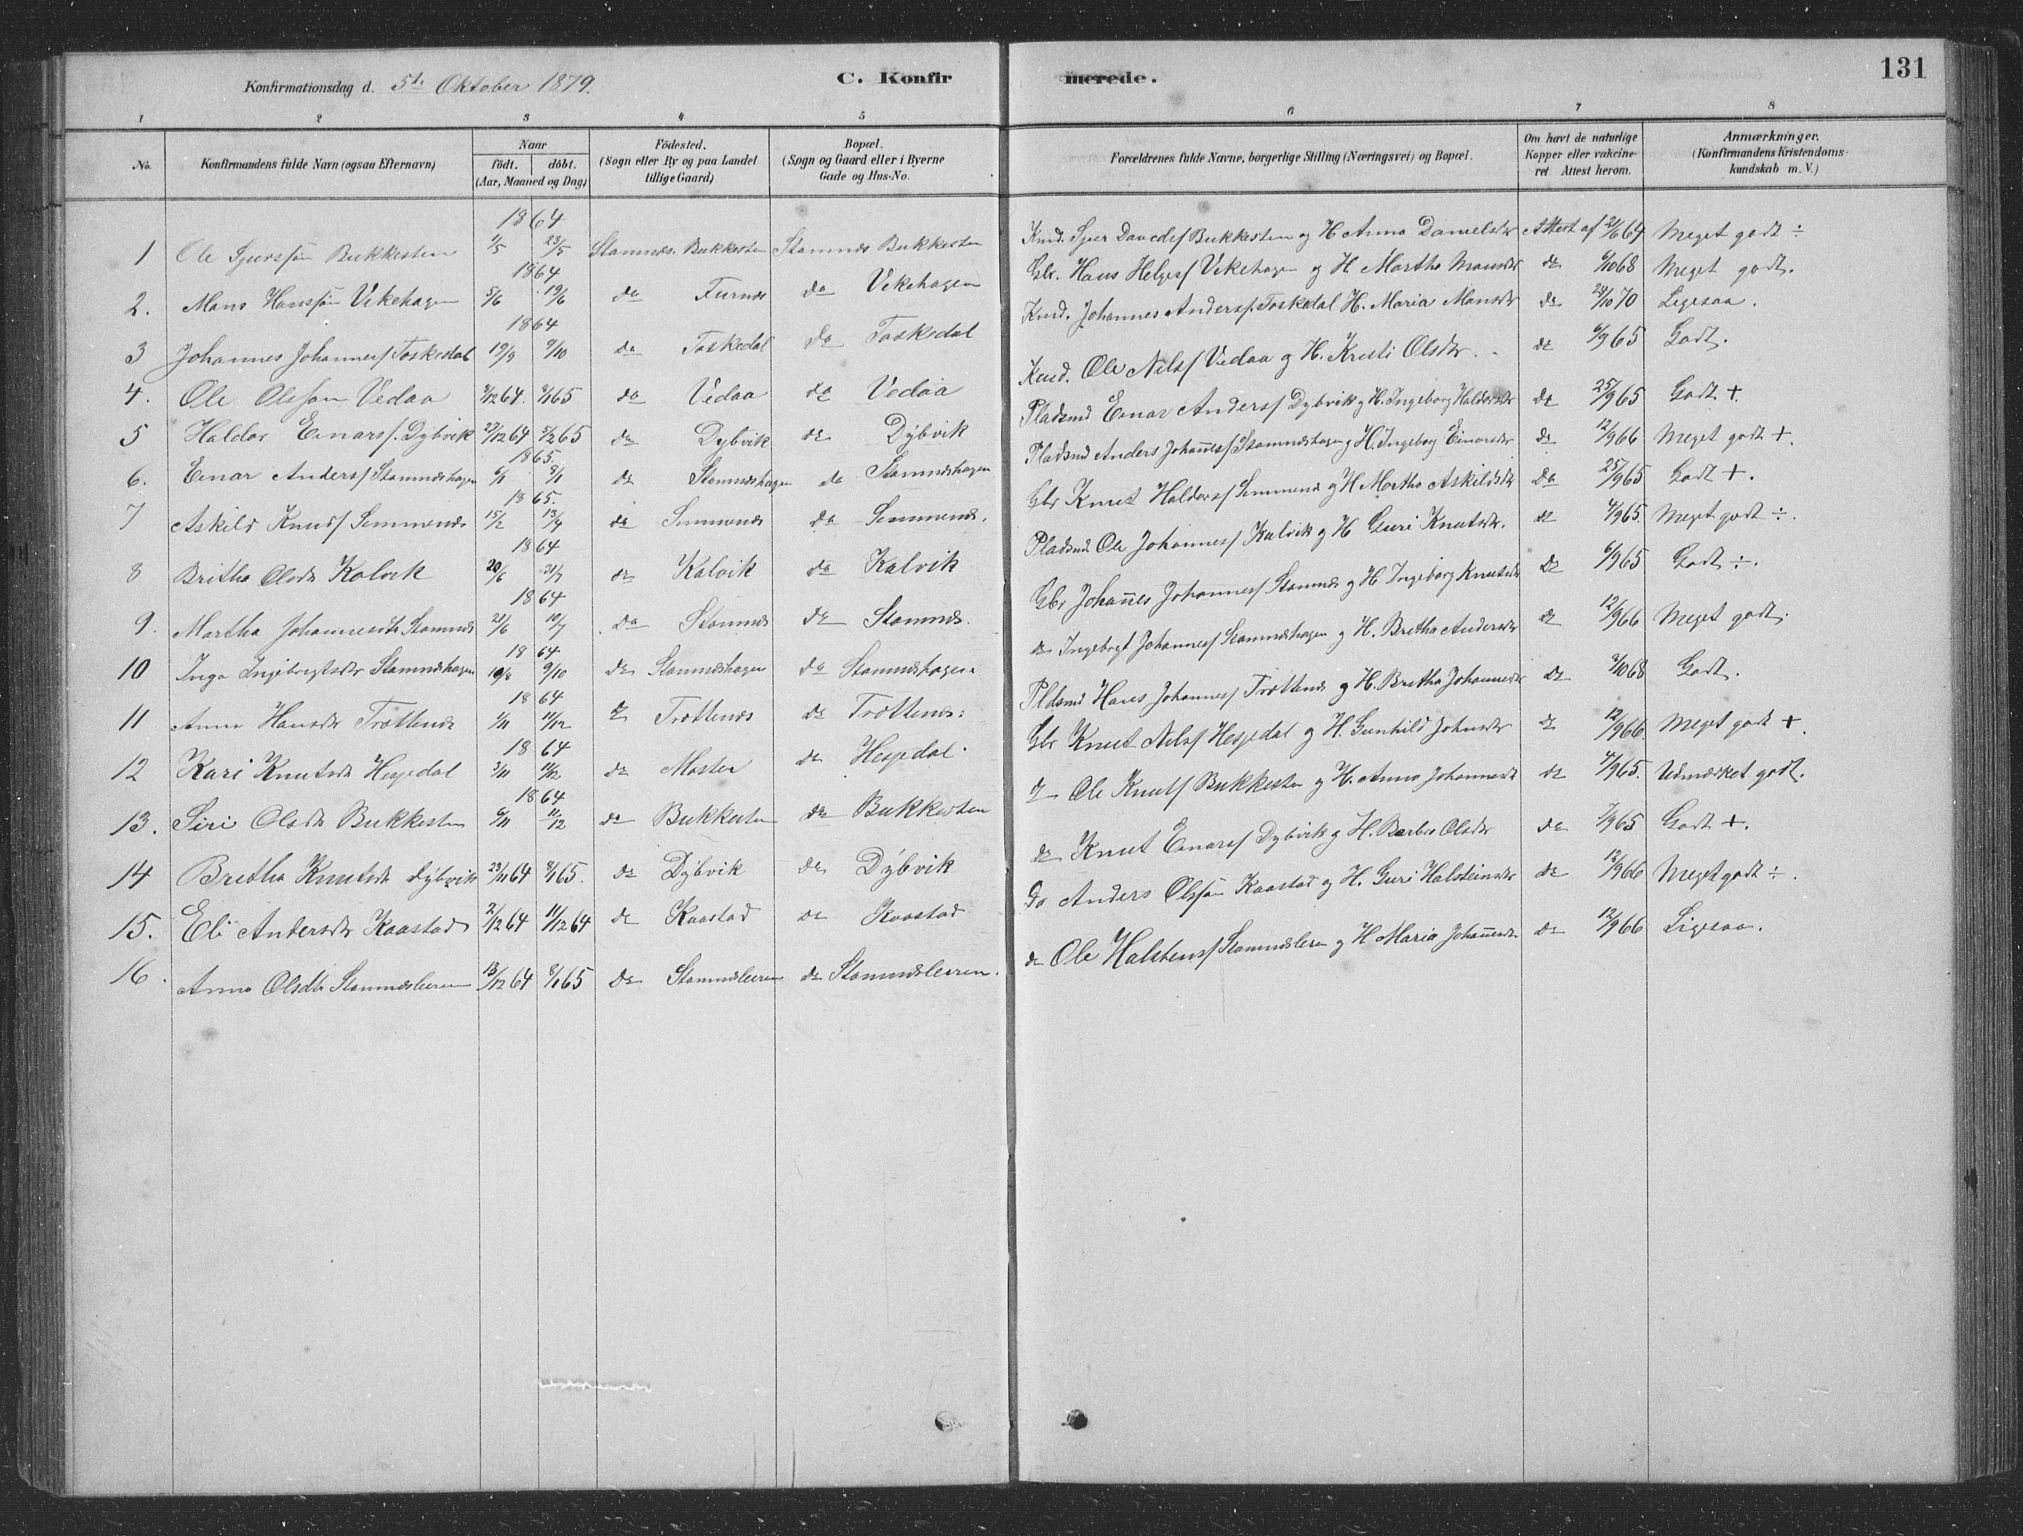 Konfirmationsdag d. 5te Oktober 1879. C. Konfir merede. 131
1 2 3 4 5 6 7 8
No. Konfirmandens fulde Navn (ogsaa Efternavn) Naar födt. döbt. (Aar, Maaned og Dag) Födested. (Sogn eller By og paa Landet tillige Gaard) Bopæl. (Sogn og Gaard eller i Byerne Gade og Hus-No. Forældrenes fulde Navne, borgerlige Stilling (Næringsvei) og Bopæl. Om havt de naturlige Kopper eller vakcineret. Attest herom. Anmærkninger. (Konfirmandens Kristendomskundskab m. V.)
1864
1 Ole Sjurssøn Bukkesten 23/5 Stamnes. Bukkesten Stamnes Bukkesten Kmd. Sjur Davids/ Bukkesten og H Anna Danielsdr Attest af 64 Meget godt ÷
1864
2. Mons Hanssøn Vikehagen 5/6 19/6 do Furnes do Vikehagen Gbr. Hans Helges/ Vikehagen og H Martha Monsdr do 6/1068 Meget godt.
1864
3 Johannes Johannes/ Toskedal 19/9 9/10 do Toskedal do Toskedal Kmd. Johannes Anders/ Toskedal H. Maria Monsdr do 24/1070 Ligesaa.
4. Ole Olesøn Vedaa 64. 65 do Vedaa do Vedaa Kmd. Ole Nils/ Vedaa og H. Kristi Olsdr. do 6/965 Godt.
5 Haldor Einars/ Dybvik 27/1264 5/265 do Dybvik do Dybvik Pladsmd Einar Anders/ Dybvik og H. Ingeborg Haldorsdr do 25/965 Godt +
1865.
6. Einar Anders/ Stamneshagen 6/1 8/1 do Stamneshagen do Stamneshagen Pladsmd Anders Johannes/ Stamneshagen og H. Ingeborg Einarsdr do 12/966 Meget godt +.
1865.
7 Askild Knuds/ Simmenes 15/2 13/4 do Simmenes do Simmenes. Gbr Knut Haldors/ Simmenes og H Martha Askildsdr do 25/965 Godt +.
1864
8 Britha Olsdr Kalvik 20/6 21/7 do Kalvik do Kalvik Pladsmd Ole Johannes/ Kalvik og H Guri Knutsdr. do 965. Meget godt ÷.
1864
9. Martha Johannesdr Stamnes 21/6 10/7 do Stamnes do Stamnes. Gbr Johannes Johannes/ Stamnes og H. Ingeborg Knutsdr do 6/965 Godt ÷.
1864
10 Inga Ingebrigtsdr Stamneshagen 10/8 9/10 do Stamneshagen do Stamneshagen. do Ingebrgt Johannes/ Stamneshagen og H. Britha Andersdr do 12/966 Meget godt.
1864
11 Anna Hansdr Trottenes 11/12 do Trottenes do Trottenes. Pldsmd Hans Johannes/ Trottenes og H. Britha Johannesdr do 1068 Godt.
1864
12 Kari Knutsdr Hesjedal 3/11 11/12 do Moster do Hesjedal. Gbr Knut Nils/ Hesjedal og H. Gunhild Johnsdr do 12/966. Meget godt +
1864
13. Siri Olsdr Bukkesten 6/11 11/12 do Bukkesten do Bukkesten do Ole Knuts/ Bukkesten og H. Anna Johannesdr do 965. Udmærket godt.
14 Britha Knutsdr Dybvik 23/1164 8/165. do Dybvik do Dybvik do Knut Einars/ Dybvik og H. Barbro Olsdr do 7/965 Godt +.
15. Eli Andersdr Kaastad 2/1264 11/1264 do Kaastad do Kaastad Do Anders Olssøn Kaastad og H. Guri Halsteinsdr do 12/966 Meget godt ÷.
16. Anna Olsdtr Stamnesleeren 13/1264 8/165 do Stamnesleeren do Stamnesleeren. do Ole Halstens/ Stamnesleren og H Maria Johannesdr do 12/966 Ligesaa.